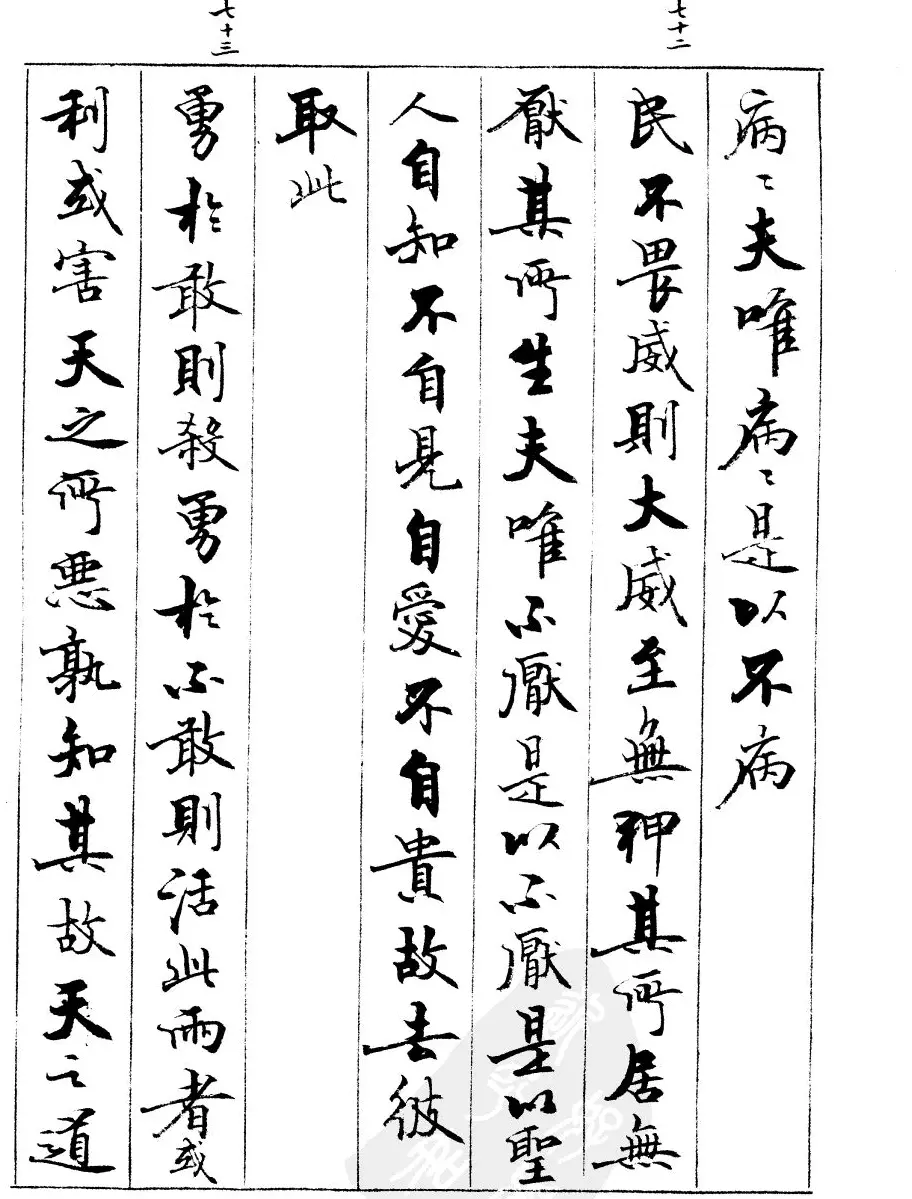 七十二
病〻夫唯病〻是以不病
民不畏威則大威至無狎其所居無
厭其所生夫唯不厭是以不厭是以聖
人自知不自見自愛不自貴故去彼
取此
七十三
勇於敢則殺勇於不敢則活此兩者或
利或害天之所悪孰知其故天之道